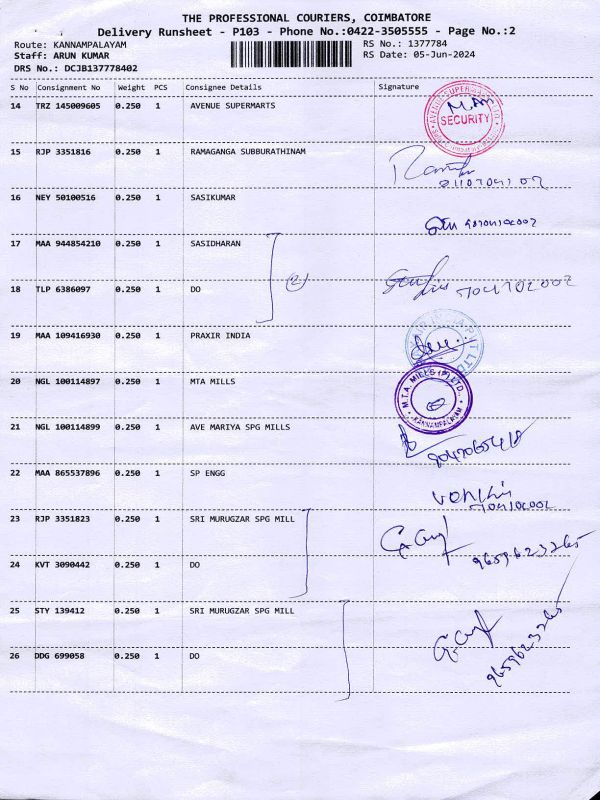 THE PROFESSIONAL COURIERS, COIMBATORE
Delivery Runsheet - P103 - Phone No.:0422-3505555 - Page No.:2
Route: KANNAMPALAYAM RS No.: 1377784
Staff: ARUN KUMAR RS Date: 05-Jun-2024
DRS No.: DCJB137778402
S No Consignment No Weight PCS Consignee Details Signature
14 TRZ 145009605 0.250 1 AVENUE SUPERMARTS
SECURITY
15 RJP 3351816 0.250 1 RAMAGANGA SUBBURATHINAM
16 NEY 50100516 0.250 1 SASIKUMAR
17 MAA 944854210 0.250 1 SASIDHARAN
(2)
18 TLP 6386097 0.250 1 DO
19 MAA 109416930 0.250 1 PRAXIR INDIA
20 NGL 100114897 0.250 1 MTA MILLS
M.T.A. MILLS (P) LTD.,
KANNAMPALAYAM
21 NGL 100114899 0.250 1 AVE MARIYA SPG MILLS
22 MAA 865537896 0.250 1 SP ENGG
23 RJP 3351823 0.250 1 SRI MURUGZAR SPG MILL
9659623265
24 KVT 3090442 0.250 1 DO
25 STY 139412 0.250 1 SRI MURUGZAR SPG MILL
9659623265
26 DDG 699058 0.250 1 DO